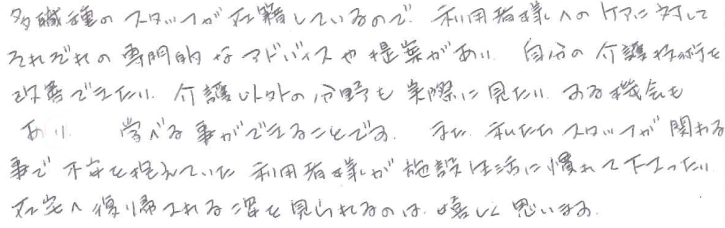 多職種のスタッフが在籍しているので、利用者様へのケアに対して
それぞれの専門的なアドバイスや提案があり、自分の介護技術を
改善できたり、介護以外の分野も実際に見たり、する機会も
あり、学べる事ができることです。また、私たちスタッフが関わる
事で不安を抱えていた利用者様が施設生活に慣れて下さったり、
在宅へ復帰される姿を見られるのは、嬉しく思います。